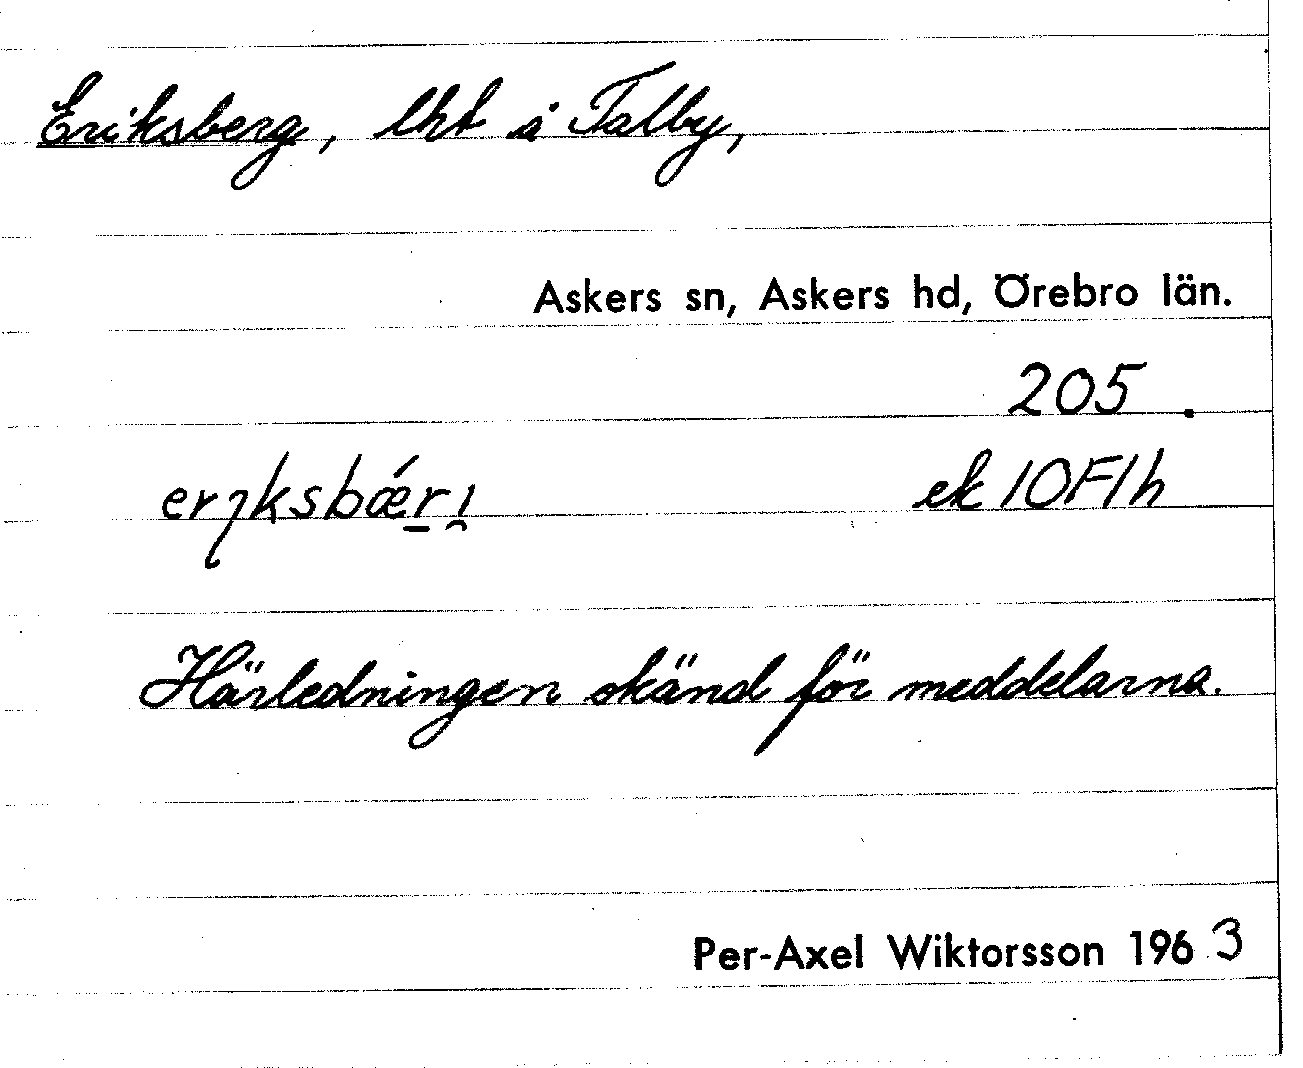 Eriksberg, lht å Talby,
Askers sn, Askers hd, Örebro län.
205.
ek 10F1h
Härledningen okänd för meddelarna.
Per-Axel Wiktorsson 1963